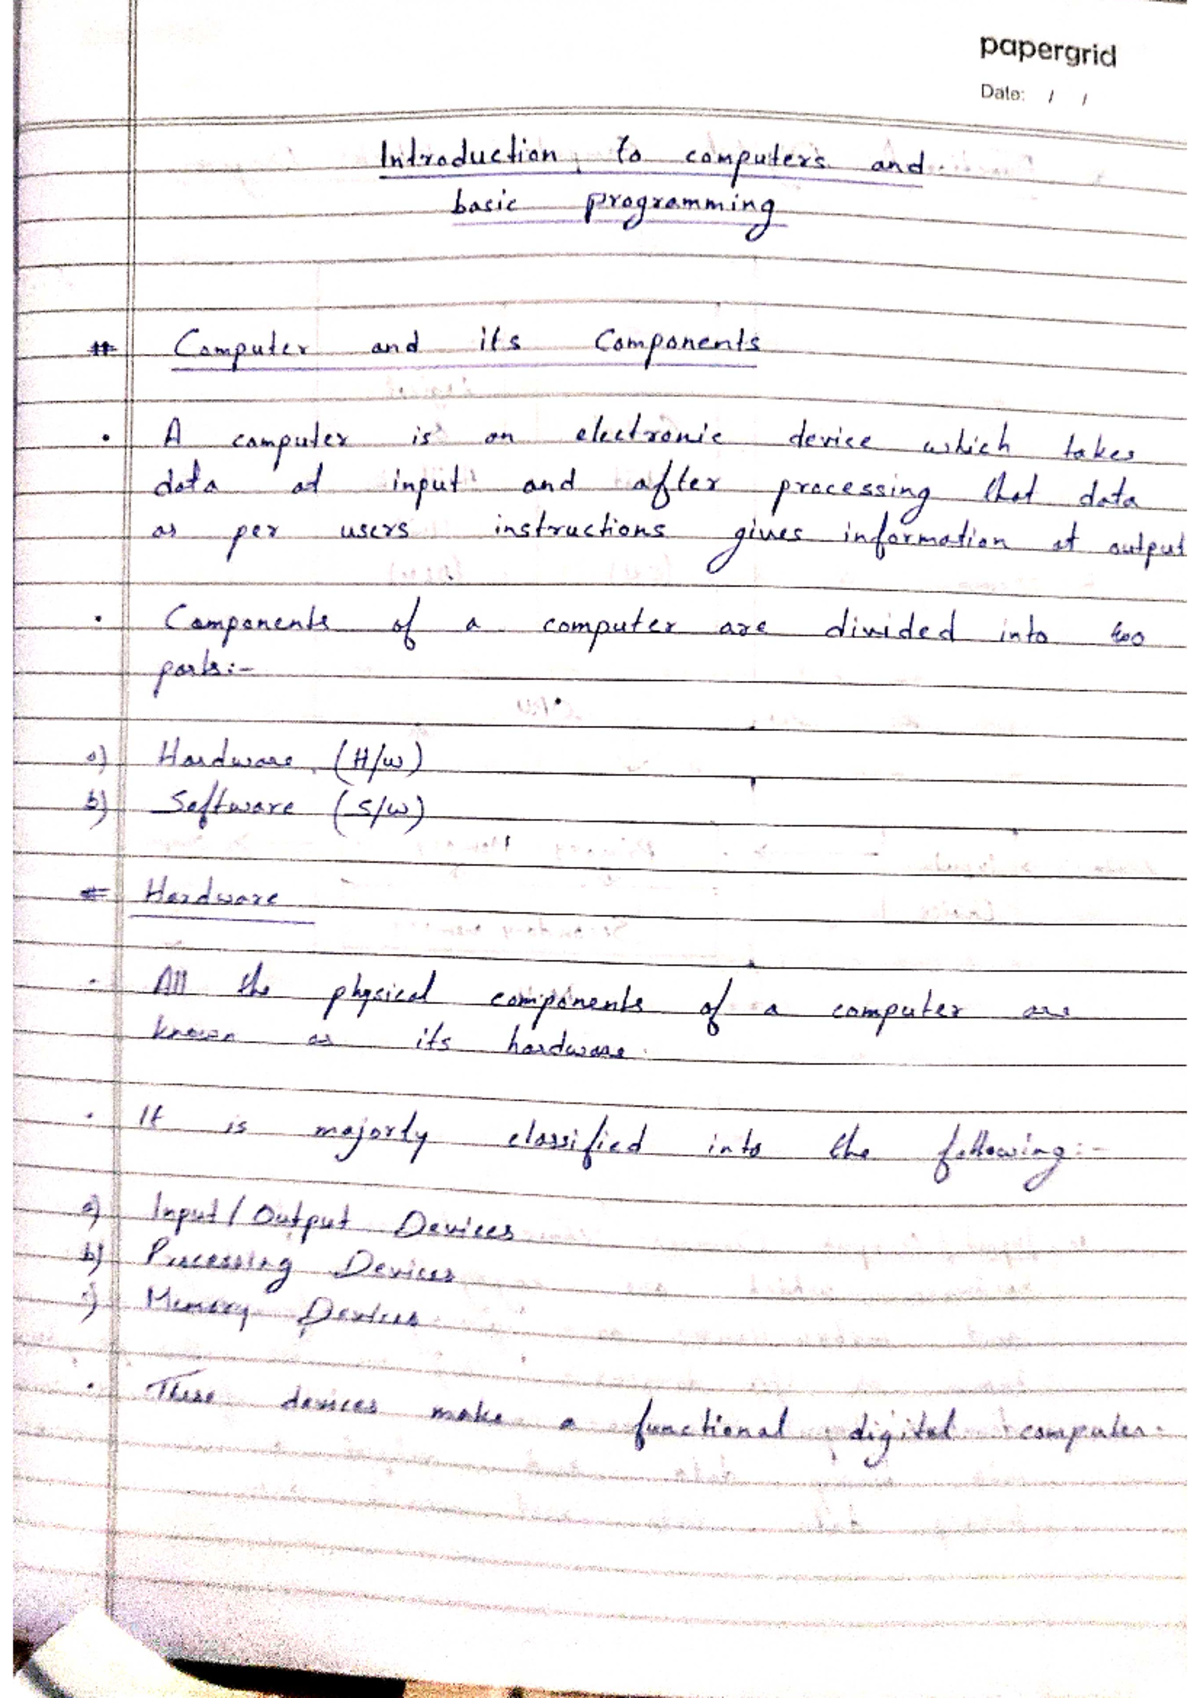 papergrid
Date: / /
Introduction to computers and
basic programming
# Computer and its Components
• A computer is an electronic device which takes
data at input and after processing that data
as per users instructions gives information at output
• Components of a computer are divided into two
parts:-
a) Hardware (H/w)
b) Software (S/w)
# Hardware
• All the physical components of a computer are
known as its hardware.
• It is majorly classified into the following:-
a) Input/Output Devices
b) Processing Devices
c) Memory Devices
• These devices make a functional digital computer.